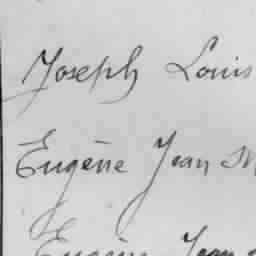 Joseph Louis
Eugène Jean M
Eugène Jean